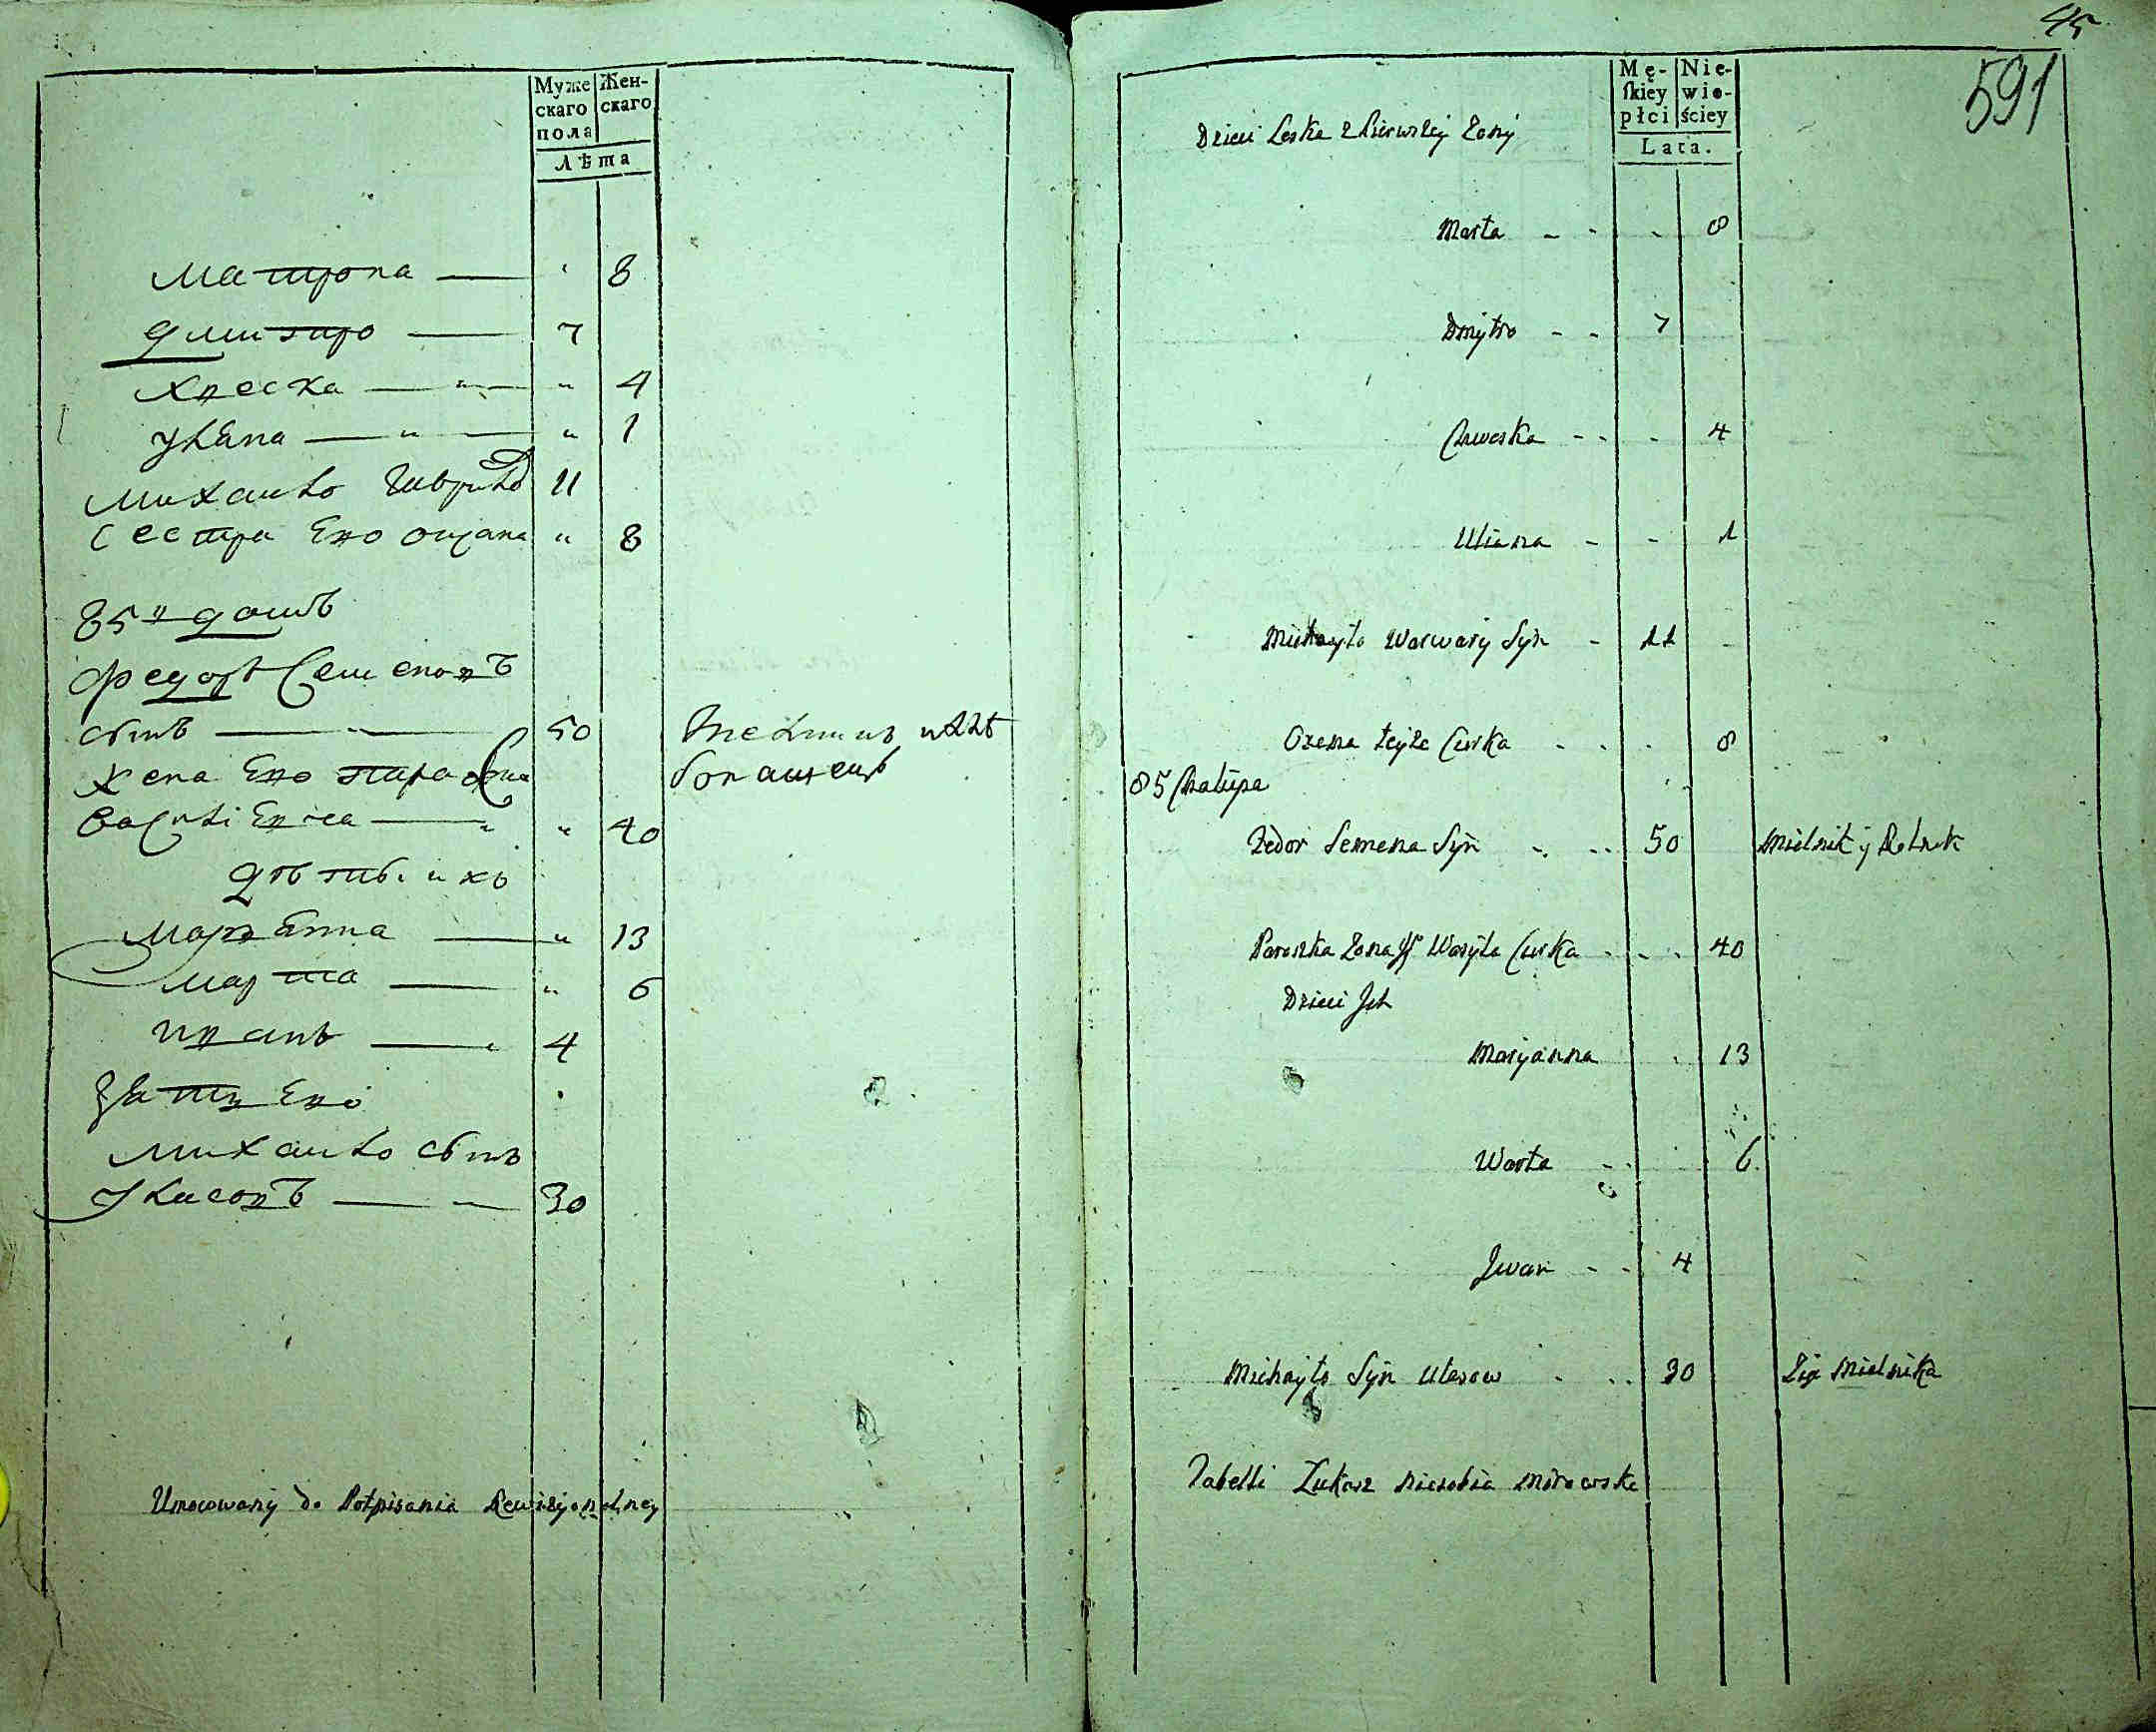 Муже Жен-
скаго скаго
пола
Лѣта
Матрона — " 8
Дмитро — 7
Хвеска — " — " 4
Уляна — " — " 1
Михайло Гаврило 11
Сестра Его оцана " 8
85 й домъ
Федоръ Семеновъ
сынъ — 50 Мелникъ
жена Его параска
Василiевна — " 40
Дѣти ихъ
Маріянна — " 13
Марта — " 6
иванъ — 4
Зять Его
Михайло сынъ
Уласовъ — 30
Umocowany do Potpisania Rewizyonalney
45
591
Mę- Nie-
skiey wie-
płci ściey
Lata.
Dzieci Leska z Pierwszey Zony
Marta - - - 8
Dmytro - - 7
Chweska - - - 4
Uliana - - 1
Michayło Warwary Syn - 11 -
Oxena teyże Curka - - - 8
85 Chałupa
Fedor Semena Syn - - 50 Mielnik y Rolnik
Paraska Zona Jego Wasyla Curka - - - 40
Dzieci Jch
Maryanna - 13
Warta - - 6.
Jwan - - 4
Michayło Syn Ulasow - - 30 Zięć Mielnika
Tabelli Łukasz